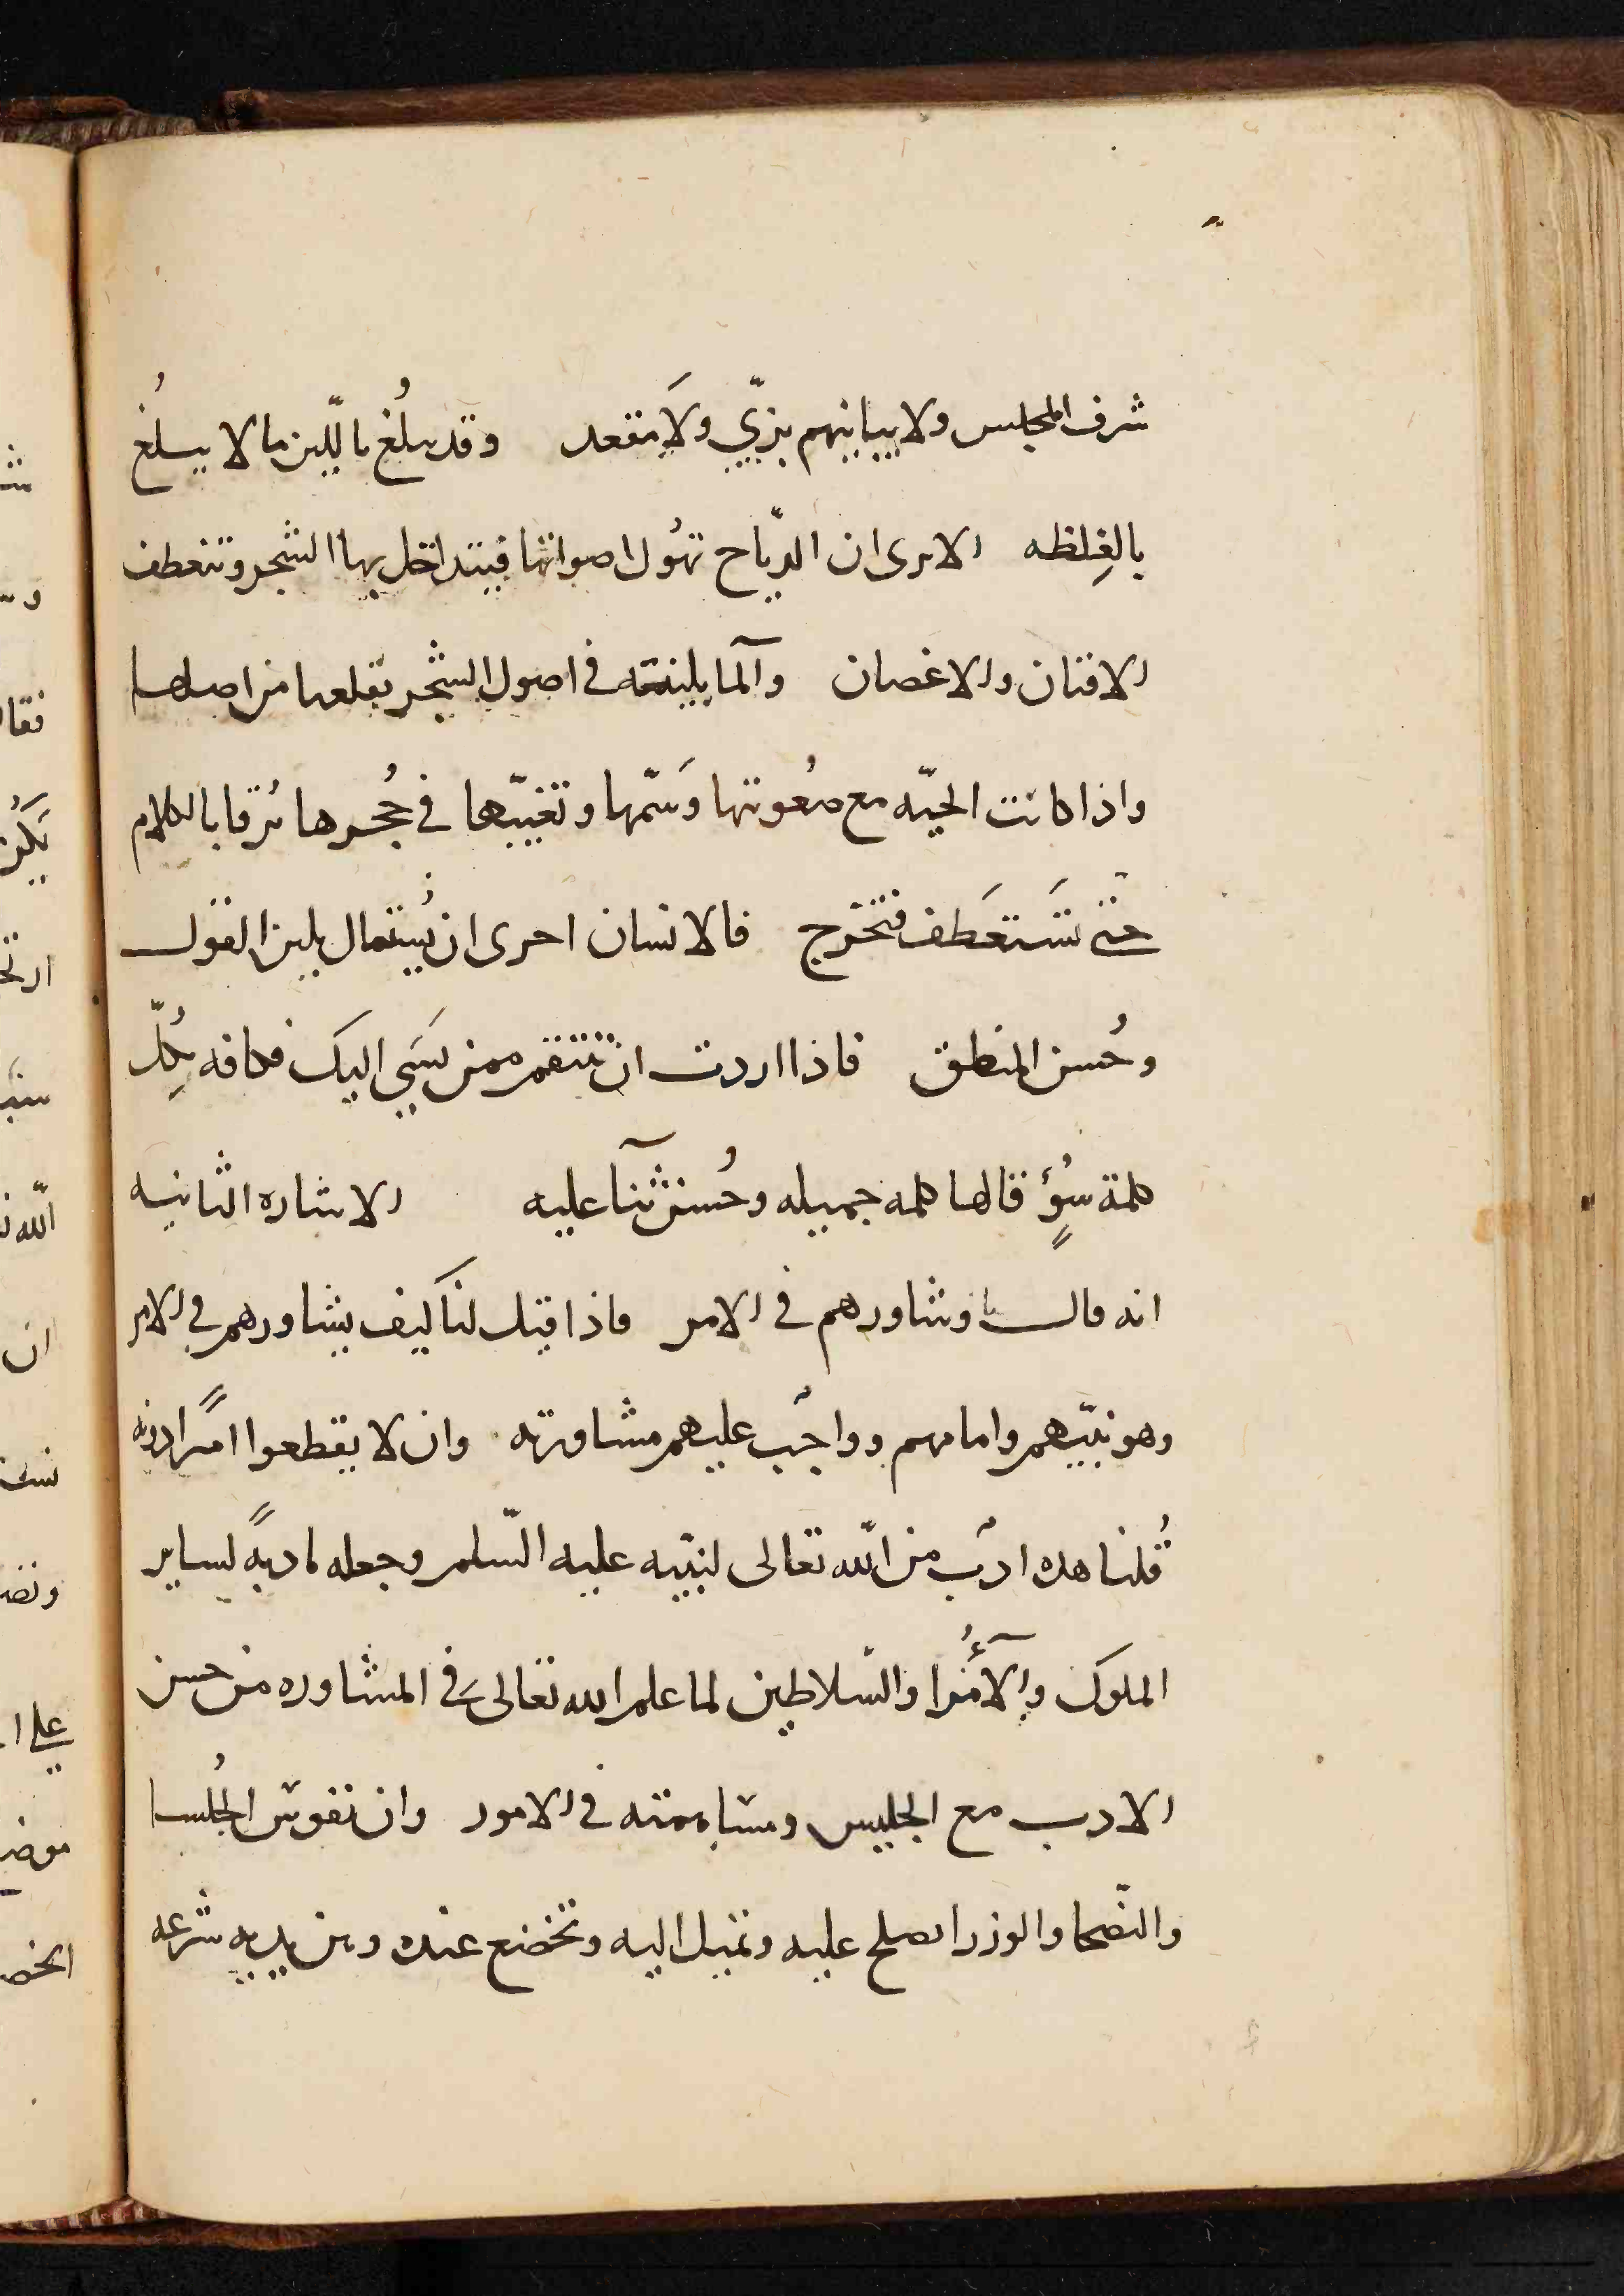 شرف المجلس ولا يباينهم بزيّ ولا مقعد وقد يبلُغ باللّين ما لا يبلُغ
بالغِلظه الا برى ان الرّياح تهُول اصواتها فيتداخل بها الشجر وتنعطف
الافنان والاغصان والمآ بلينته فى اصول الشجر يقلعها من اصلها
واذا كانت الحيّه مع صعُوبتها وَسمّها وتغيّبها فى جُحرها تُرقا بالكلام
حتى تَستعَطف فتخرج فالانسان احرى ان يُستمال بلين القول
وحُسن المنطق فاذا اردت ان تنتقم ممن يسَي اليك فكافه بكُلّ
كلمة سُوٍء قالها كلمه جميله وحُسن ثنآ عليه الاشاره الثانيه
انه قال وشاورهم فى الامر فاذا قيل لنا كيف يشاورهم فى الامر
وهو نبيّهم وامامهم وواجب عليهم مشاورته وان لا يقطعوا امرًا دونه
قُلنا هذه ادب من اللّه تعالى لنبيّه عليه السّلم وجعله مادبةً لساير
الملوك والامُرآ والسّلاطين لما علم الله تعالى فى المشاوره من حسن
الادب مع الجليس ومساهمته فى الامور وان نفوس الجُلسا
والنصحا والوزرا تصلح عليه وتميل اليه وتخضع عنده وبين يديه شرعه